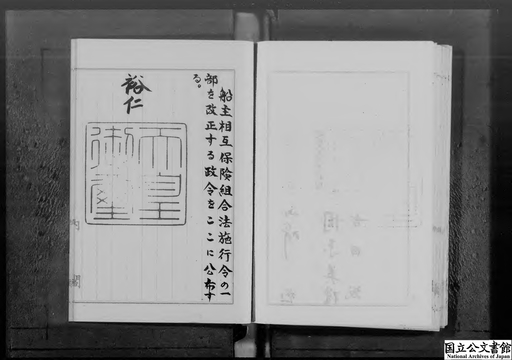 船主相互保険組合法施行令の一
部を改正する政令をここに公布す
る。
裕仁
天皇
御璽
内閣
国立公文書館
National Archives of Japan